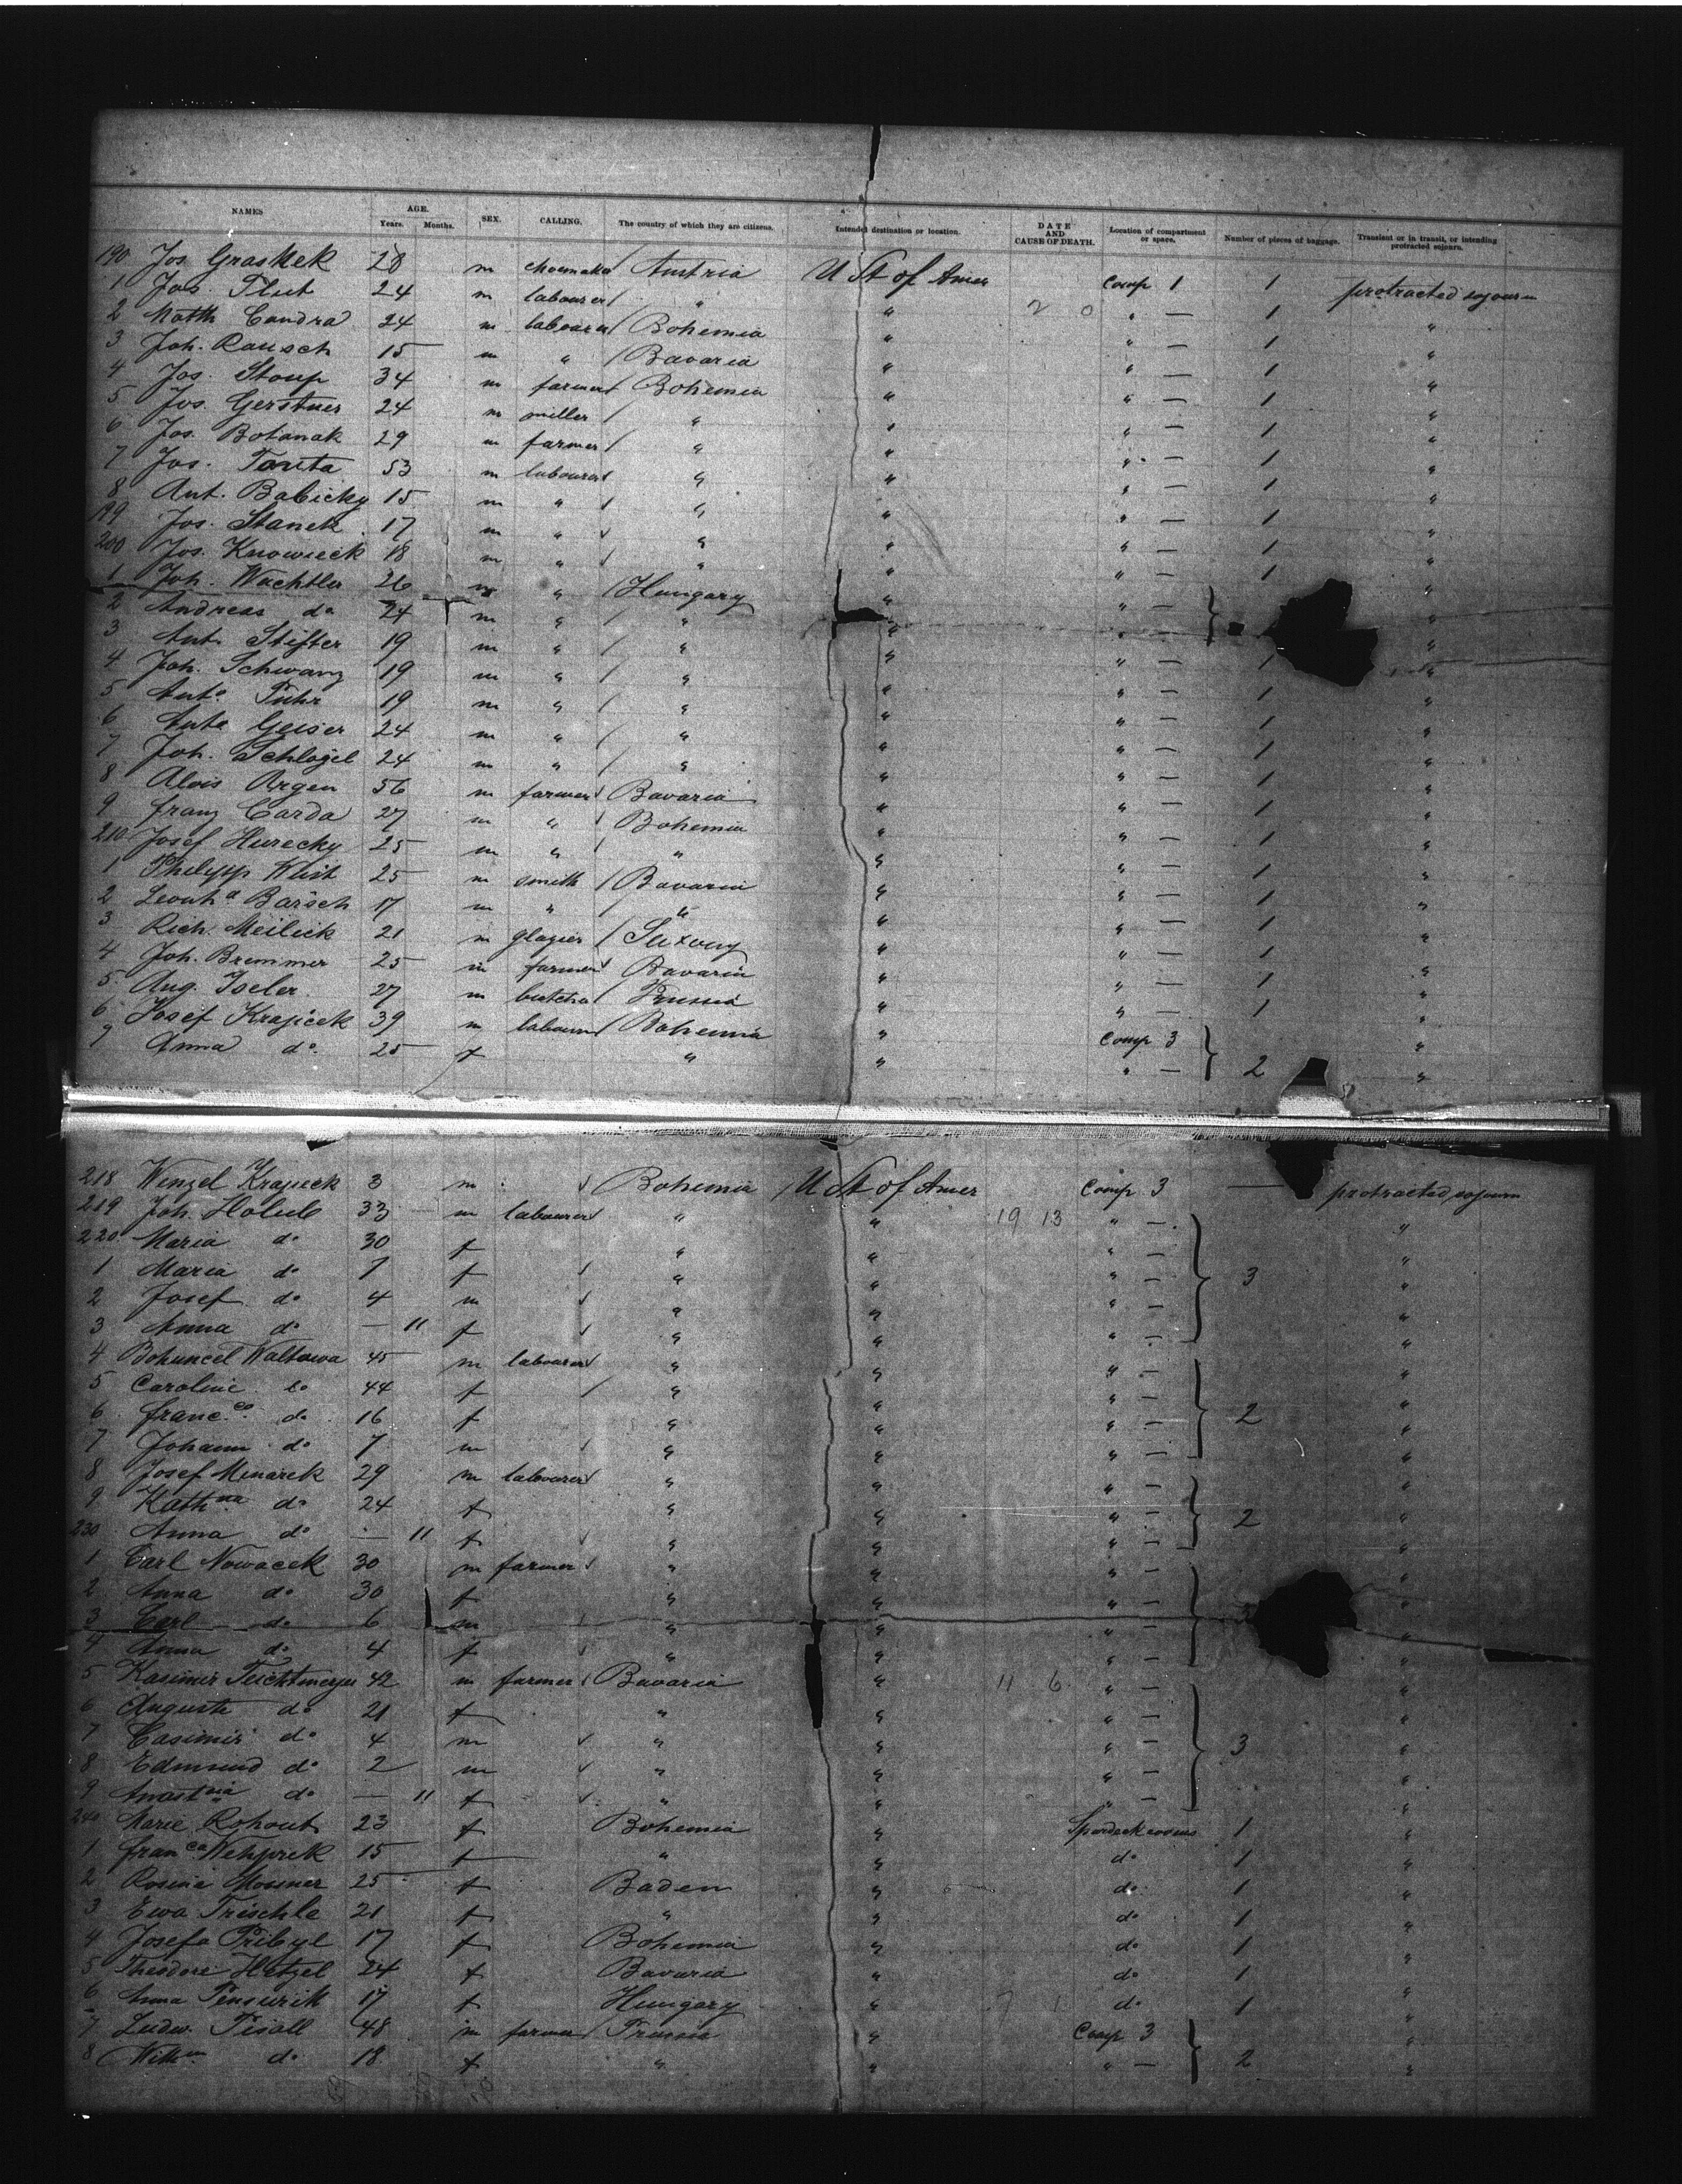 NAMES AGE. Years. Months. SEX. CALLING. The country of which they are citizens. Intended destination or location. DATE AND CAUSE OF DEATH. Location of compartment or space. Number of pieces of baggage. Transient or in transit, or intending protracted sojourn.
190 Jos. Graskek 28 m Austria U St of Amer Comp 1 1 protracted sojourn
1 Jos. 24 m labourer " " 2 0 " — 1 "
2 Matth Candra 24 m labourer Bohemia " " — 1 "
3 Joh. Rausch 15 m " Bavaria " " — 1 "
4 Jos. Stoup 34 m farmer Bohemia " " — 1 "
5 Jos. Gerstner 24 m miller " " " — 1 "
6 Jos. Botanak 29 m farmer " " " — 1 "
7 Jos. 53 m labourer " " " — 1 "
8 Ant. Babicky 15 m " " " " — 1 "
199 Jos. Stanek 17 m " " " " — 1 "
200 Jos. 18 m " " " " — 1 "
1 Joh. Wachtler 26 m " Hungary " " — "
2 Andreas do 24 m " " " " — "
3 Ant. Stifter 19 m " " " " — 1 "
4 Joh. Schwarz 19 m " " " " — 1 "
5 Anto. Fuhr 19 m " " " " — 1 "
6 Anto Geiser 24 m " " " " — 1 "
7 Joh. Schlögel 24 m " " " " — 1 "
8 Alois Argen 56 m farmer Bavaria " " — 1 "
9 Franz Carda 27 m " Bohemia " " — 1 "
210 Josef Hurecky 25 m " " " " — 1 "
1 Philipp 25 m smith Bavaria " " — 1 "
2 Leonhd Barsch 17 m " " " " — 1 "
3 Rich. Meilick 21 m glazier Saxony " " — 1 "
4 Joh. Bremmer 25 m farmer Bavaria " " — 1 "
5 Aug. Iseler 27 m butcher Prussia " " — 1 "
6 Josef Krajicek 39 m labourer Bohemia " Comp 3 "
7 Anna do 25 f " " " — 2 "
218 Wenzel Krajicek 3 m Bohemia U St of Amer Comp 3 — protracted sojourn
219 Joh. Holub 33 m labourer " " 19 13 " — "
220 Maria do 30 f " " " — "
1 Maria do 7 f " " " — 3 "
2 Josef do 4 m " " " — "
3 Anna do — 11 f " " " — "
4 Waltawa 45 m labourer " " " — "
5 Caroline do 44 f " " " — "
6 Franc.ca do 16 f " " " — 2 "
7 Johann do 7 m " " " — "
8 Josef Minarek 29 m labourer " " " — "
9 Kathna do 24 f " " " — 2 "
230 Anna do — 11 f " " " — "
1 Carl Nowacek 30 m farmer " " " — "
2 Anna do 30 f " " " — "
3 Carl do 6 m " " " — "
4 Anna do 4 f " " " — "
5 Kasimir 42 m farmer Bavaria " 11 6 " — "
6 Auguste do 21 f " " " — "
7 Casimir do 4 m " " " — 3 "
8 Edmund do 2 m " " " — "
9 do — 11 f " " " — "
240 Marie Rohout 23 f Bohemia " 1 "
1 Franca 15 f " " do 1 "
2 Rosina Mossner 25 f Baden " do 1 "
3 Ewa Trischle 21 f " " do 1 "
4 Josefa Pribyl 17 f Bohemia " do 1 "
5 Theodore Hetzel 24 f Bavaria " do 1 "
6 Anna 17 f Hungary " 7 1 do 1 "
7 Ludw. 48 m farmer Prussia " Comp 3 "
8 do 18 f " " " — 2 "